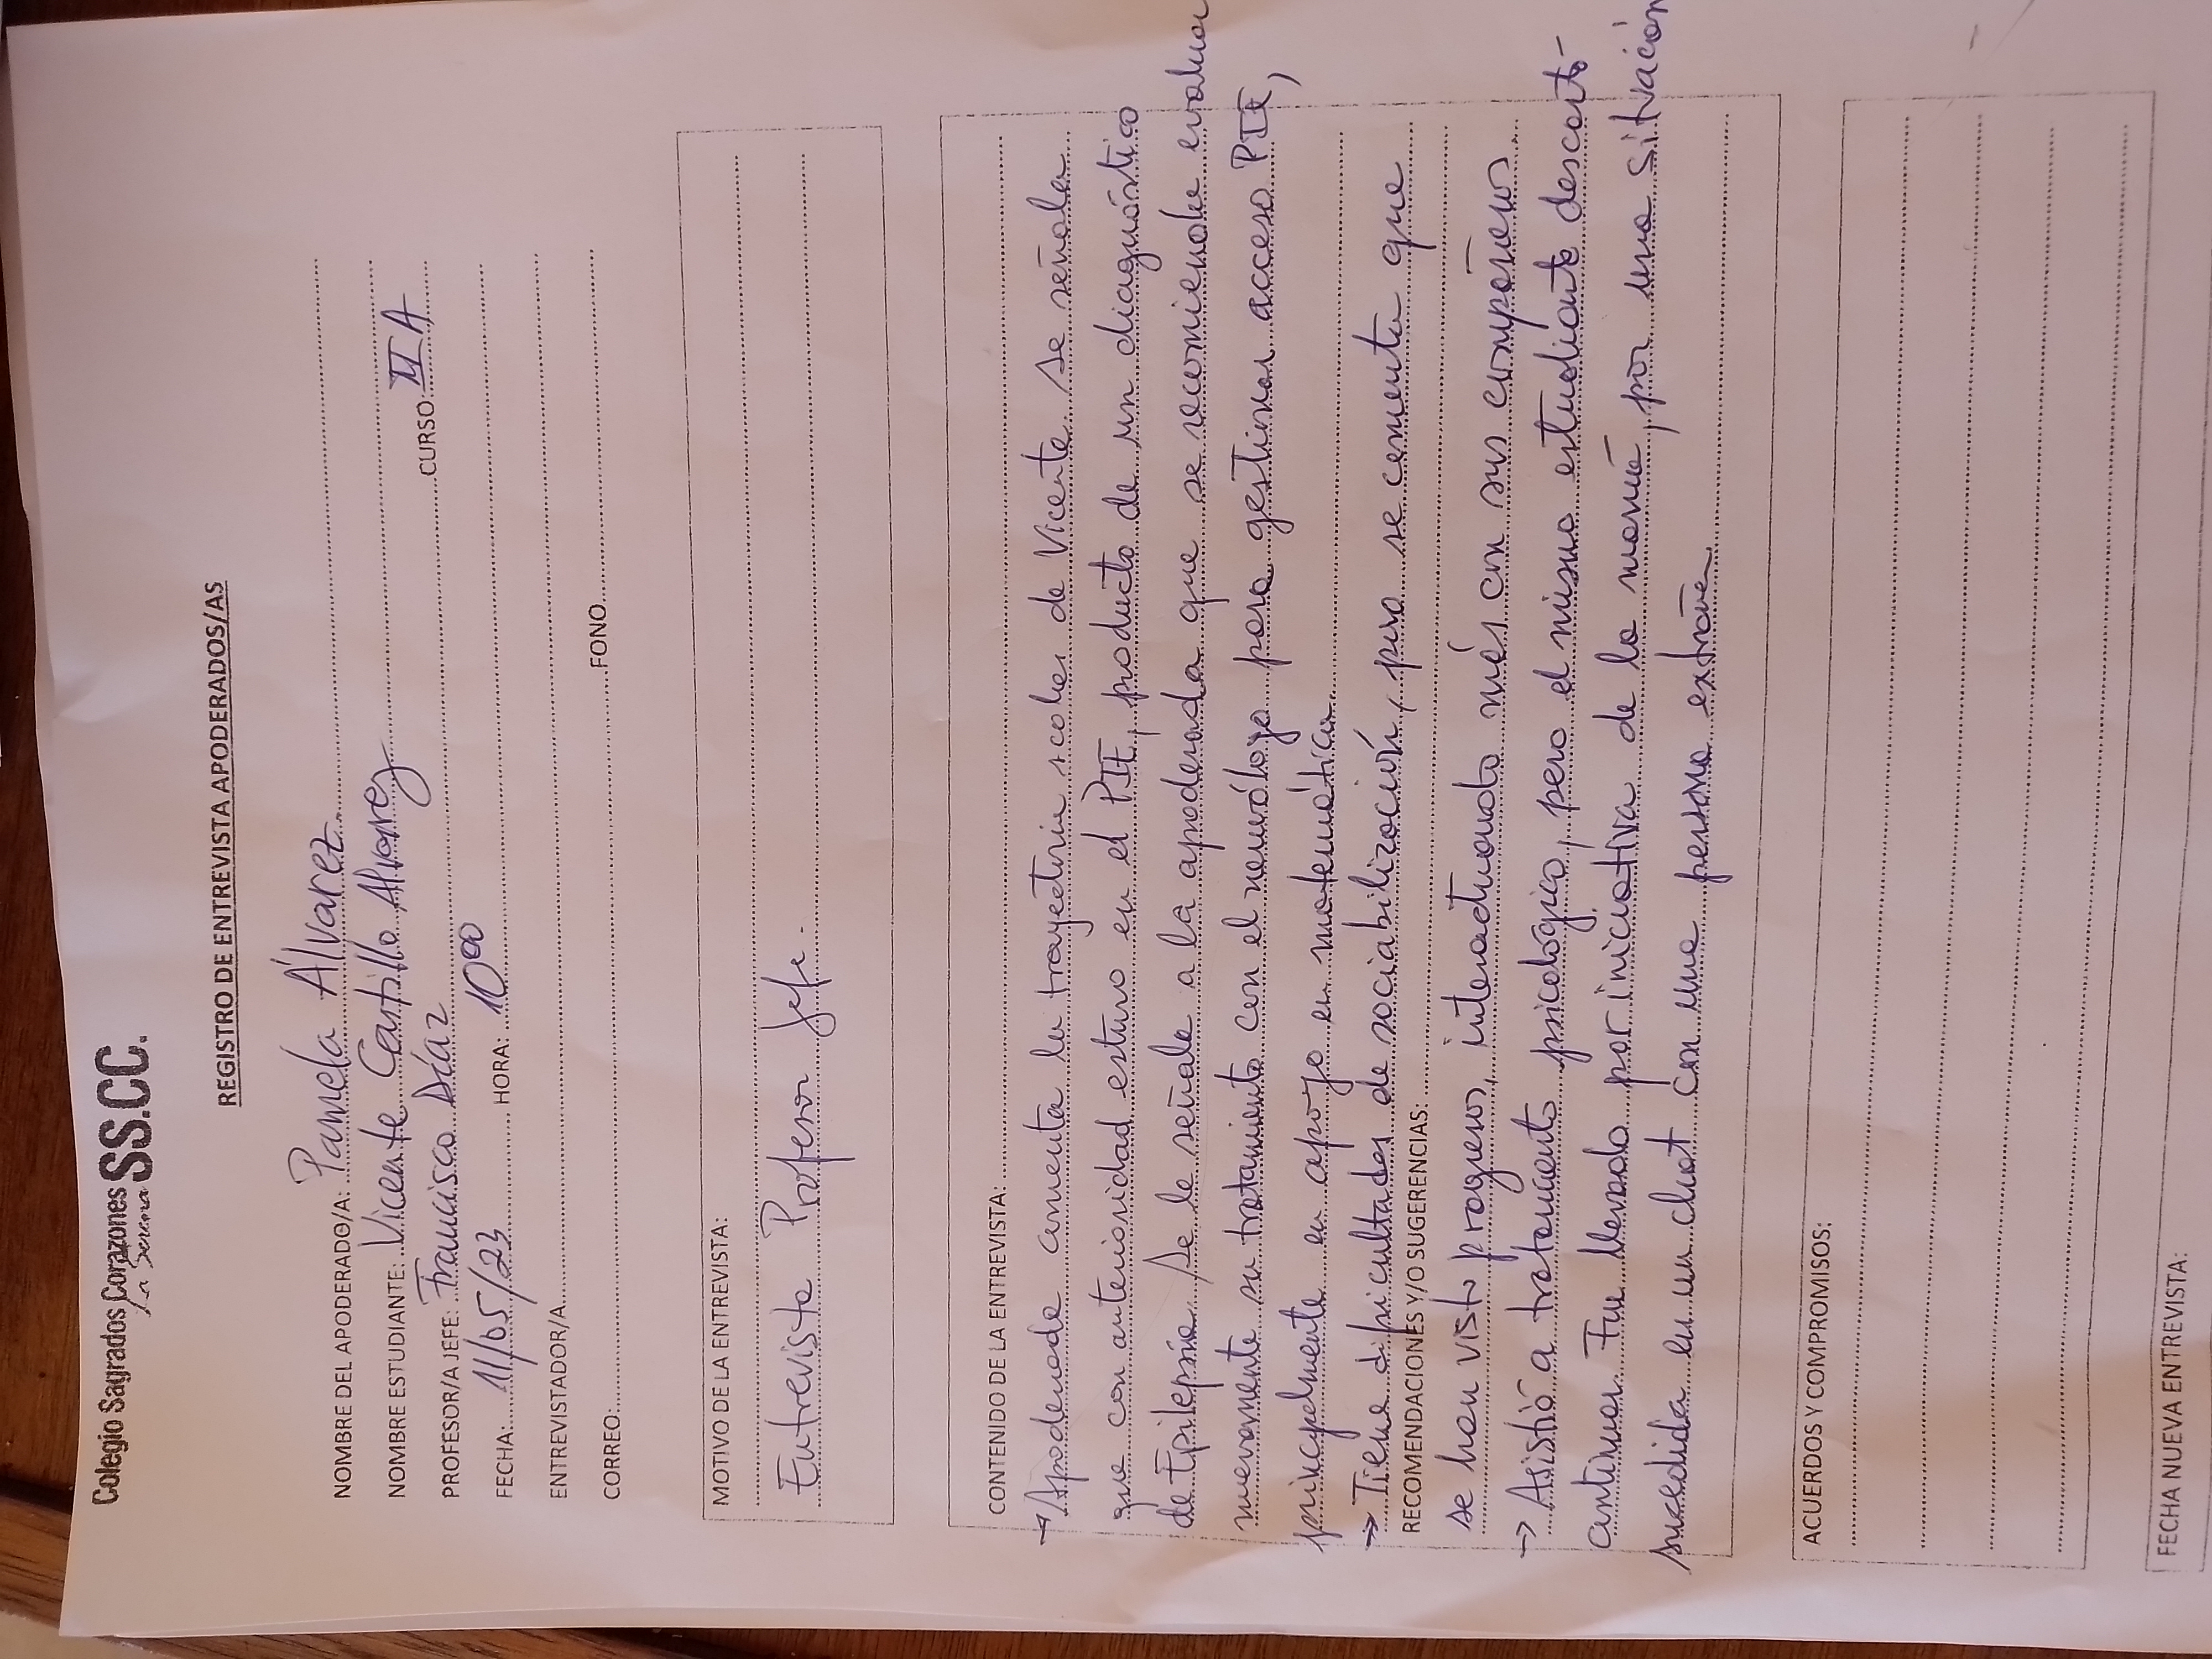 Colegio Sagrados Corazones SS.CC.
La Serena
REGISTRO DE ENTREVISTA APODERADOS/AS
NOMBRE DEL APODERADO/A: Pamela Álvarez
NOMBRE ESTUDIANTE: Vicente Castillo Alvarez CURSO: II A
PROFESOR/A JEFE: Francisco Díaz
FECHA: 11/05/23 HORA: 10:00
ENTREVISTADOR/A
CORREO: FONO
MOTIVO DE LA ENTREVISTA:
Entrevista Profesor Jefe.
CONTENIDO DE LA ENTREVISTA
→ Apoderada comenta la trayectoria scolar de Vicente. Se señala
que con anterioridad estuvo en el PIE, producto de un diagnóstico
de Epilepsia. Se le señala a la apoderada que se recomienda evaluar
nuevamente su tratamiento con el neurólogo para gestionar acceso PIE,
principalmente en apoyo en matemática.
→ Tiene dificultades de sociabilización, pero se comenta que
RECOMENDACIONES Y/O SUGERENCIAS:
se han visto progresos, interactuando más con sus compañeros
→ Asistió a tratamiento psicológico, pero el mismo estudiante descartó
continuar. Fue llevado por iniciativa de la mamá, por una situación
sucedida en un chat con una persona extraña
ACUERDOS Y COMPROMISOS:
FECHA NUEVA ENTREVISTA: